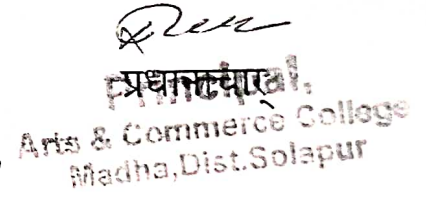 प्रधानाचार्
Principal,
Arts & Commerce College
Madha,Dist.Solapur